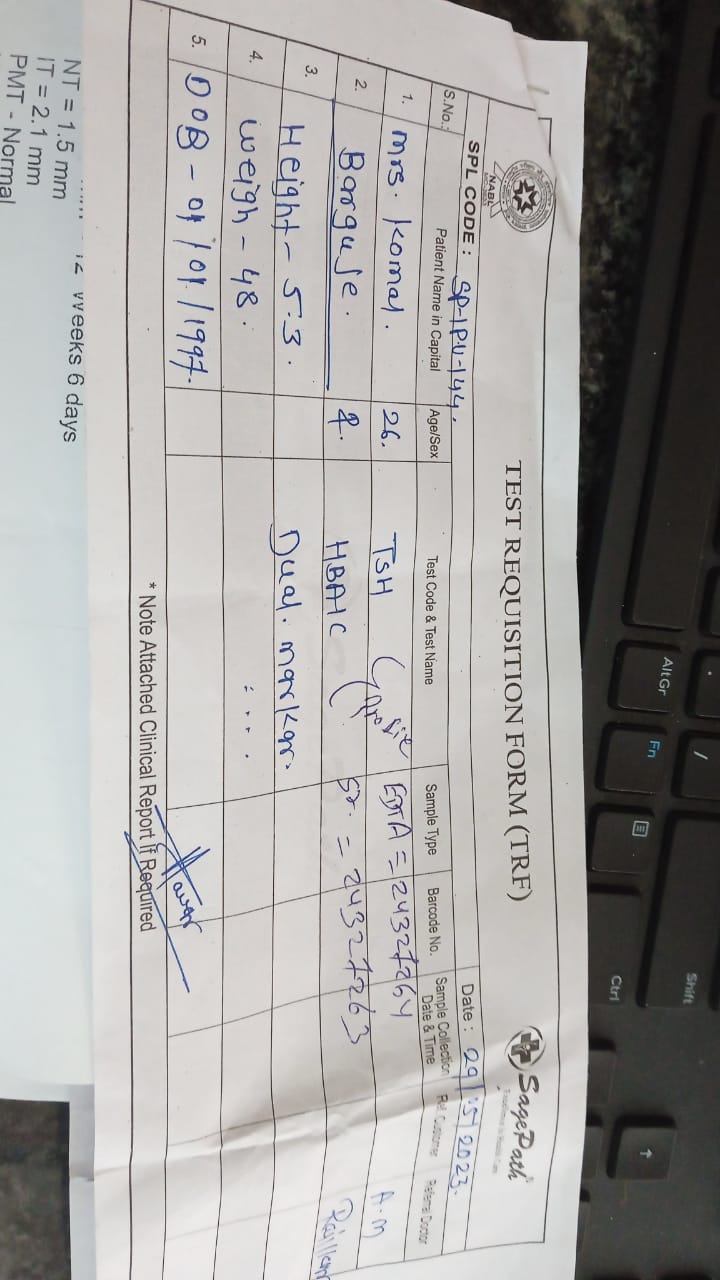 NABL
TEST REQUISITION FORM (TRF)
SagePath
SPL CODE : SP-IPU-144.
Date : 29/05/2023.
S.No.: Patient Name in Capital Age/Sex Test Code & Test Name Sample Type Barcode No. Sample Collection Date & Time Ref. Customer Referral Doctor
1. Mrs. Komal. 26. TSH EDTA = 24327264 A.M
2. Borguse. HBA1C Sr. = 24327263
3. Height - 5.3. Dual. markar.
4. Weigh - 48.
5. DOB - 01/01/1997.
* Note Attached Clinical Report If Required
12 Weeks 6 days
NT = 1.5 mm
IT = 2.1 mm
PMT - Normal
AltGr
Fn
Ctrl
Shift
/